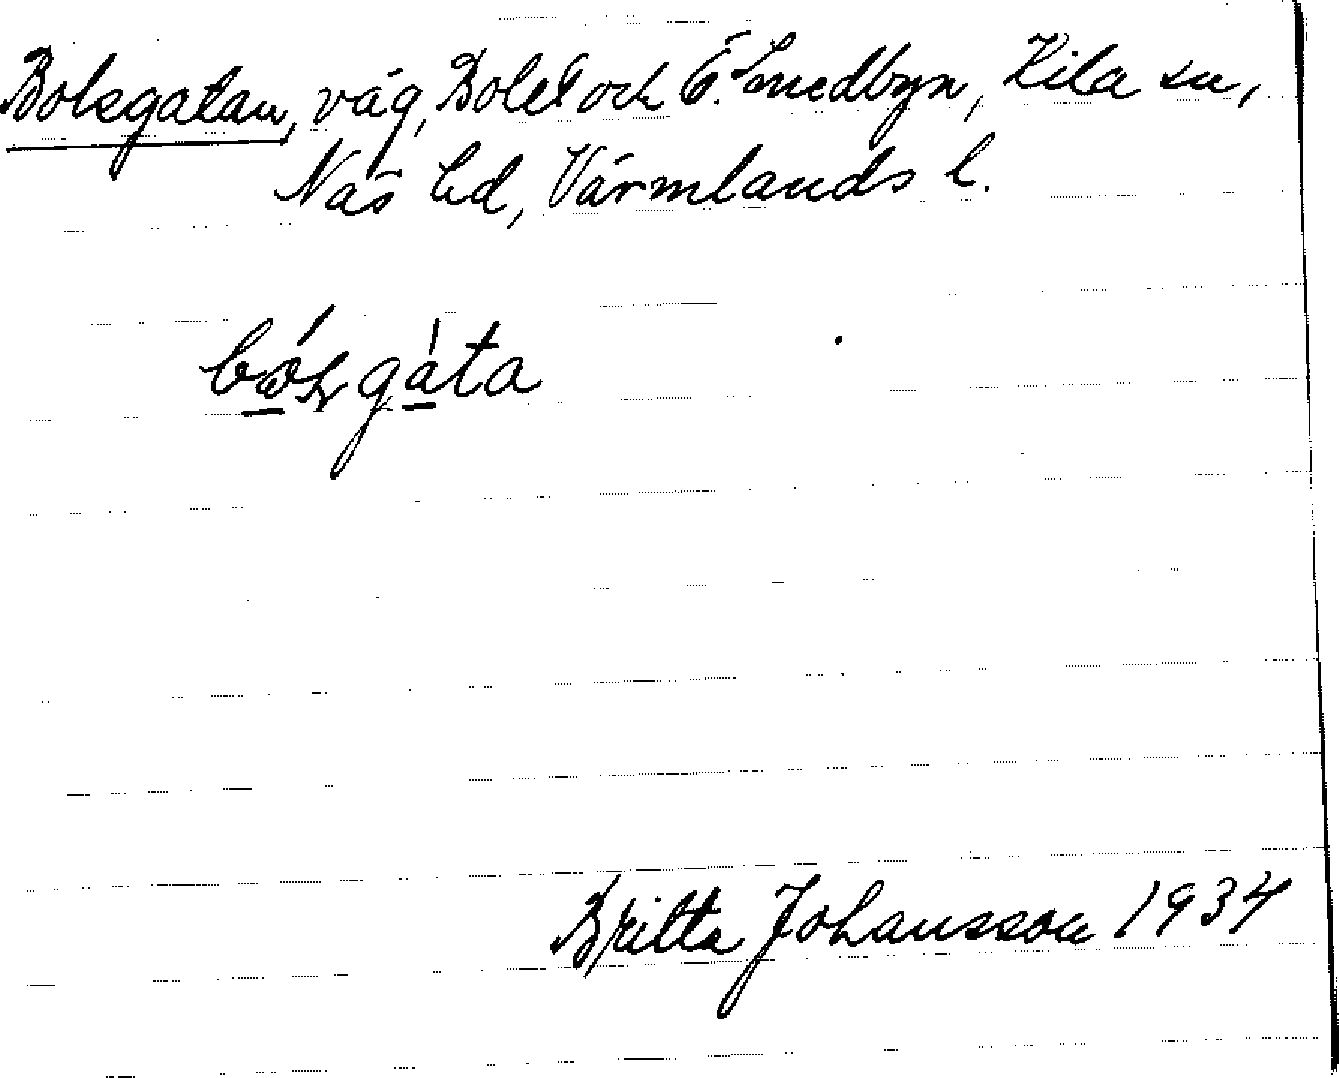 Bolsgatan, väg, Bolet och Ö. Smedbyn, Kila sn,
Näs hd, Värmlands l.
Britta Johansson 1934